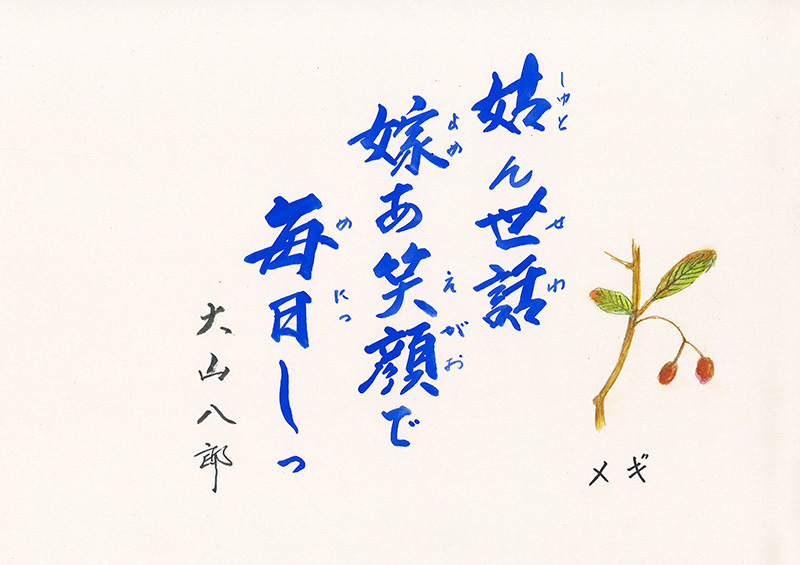 姑ん世話
しゅと
せわ
嫁あ笑顔で
よめ
えがお
毎日しっ
めにっ
大山八郎
メギ